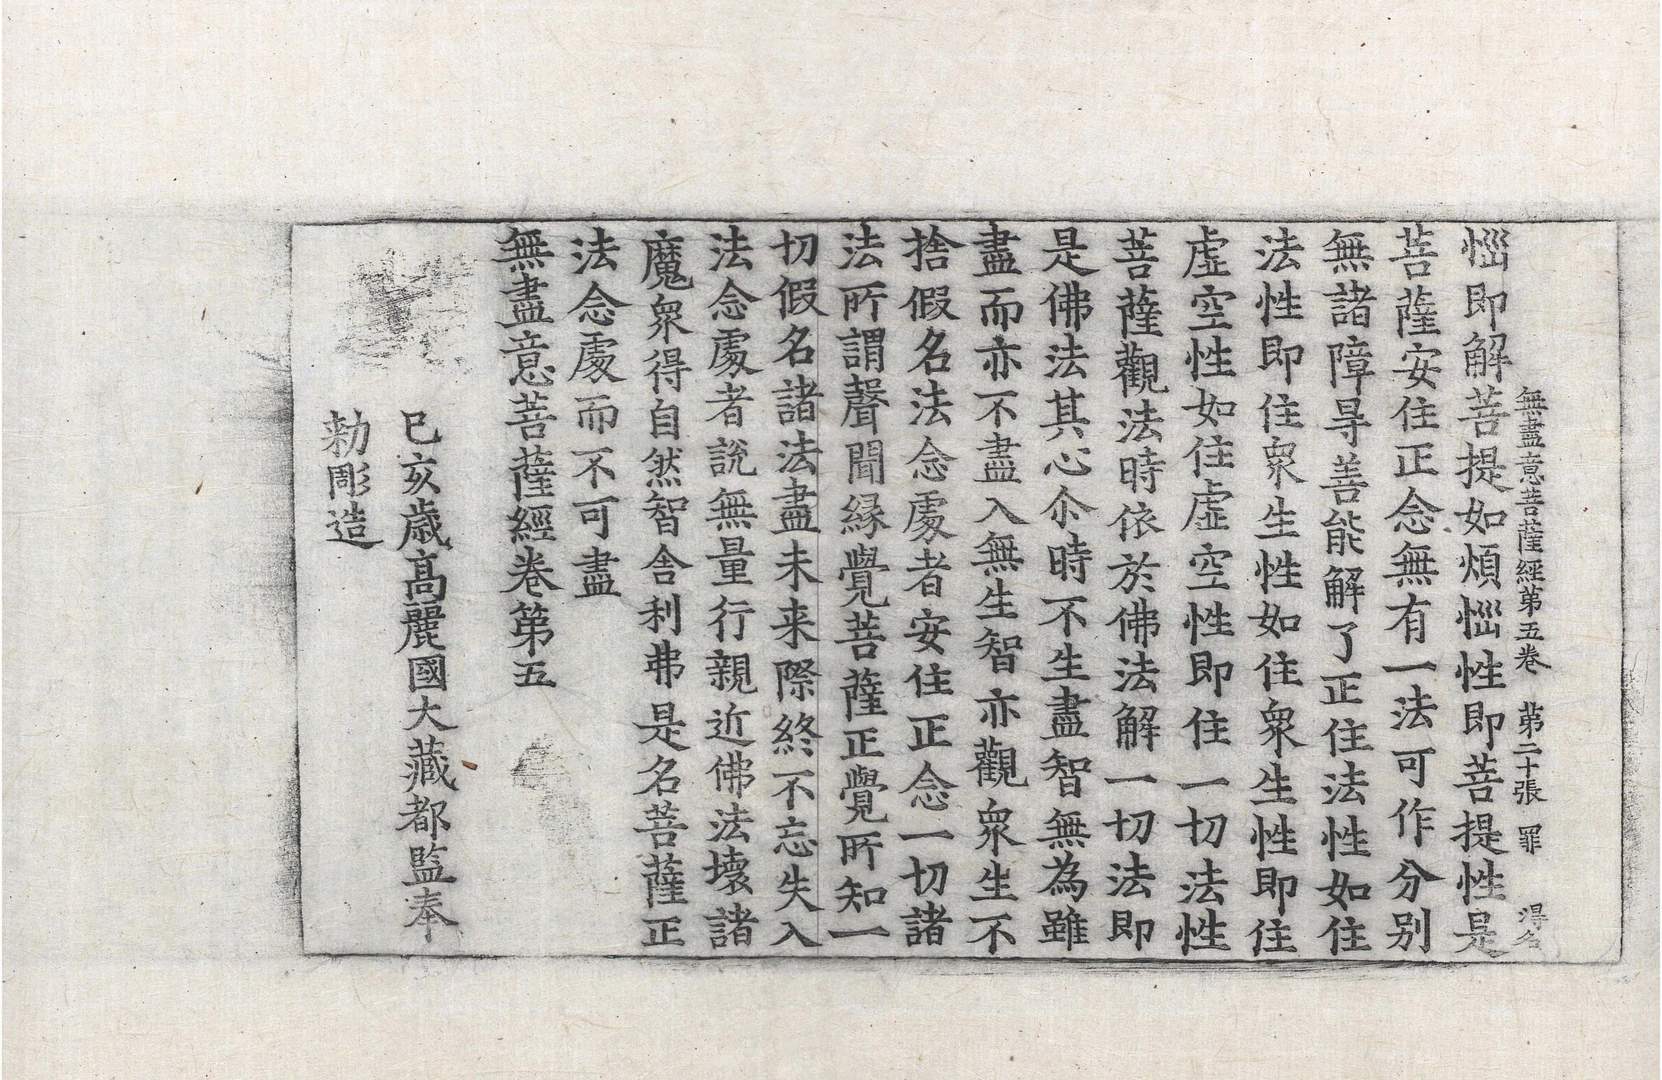 無盡意菩薩經第五卷 第二十張 罪 得名
惱即解菩提如煩惱性即菩提性是
菩薩安住正念無有一法可作分別
無諸障㝵善能解了正住法性如住
法性即住衆生性如住衆生性即住
虛空性如住虛空性即住一切法性
菩薩觀法時依於佛法解一切法即
是佛法其心尒時不生盡智無為雖
盡而亦不盡入無生智亦觀衆生不
捨假名法念處者安住正念一切諸
法所謂聲聞緣覺菩薩正覺所知一
切假名諸法盡未来際終不忘失入
法念處者說無量行親近佛法壞諸
魔衆得自然智舍利弗是名菩薩正
法念處而不可盡
無盡意菩薩經卷第五
己亥歲高麗國大藏都監奉
勅彫造